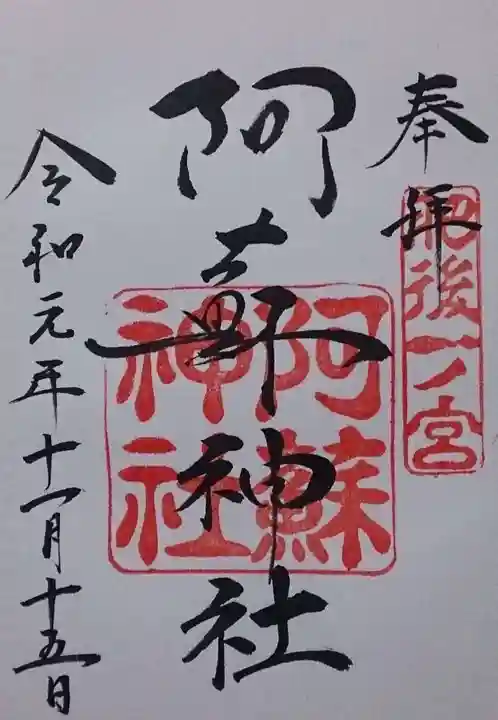 奉拝
肥後一ノ宮
阿蘇神社
阿蘇神社
令和元年十一月十五日